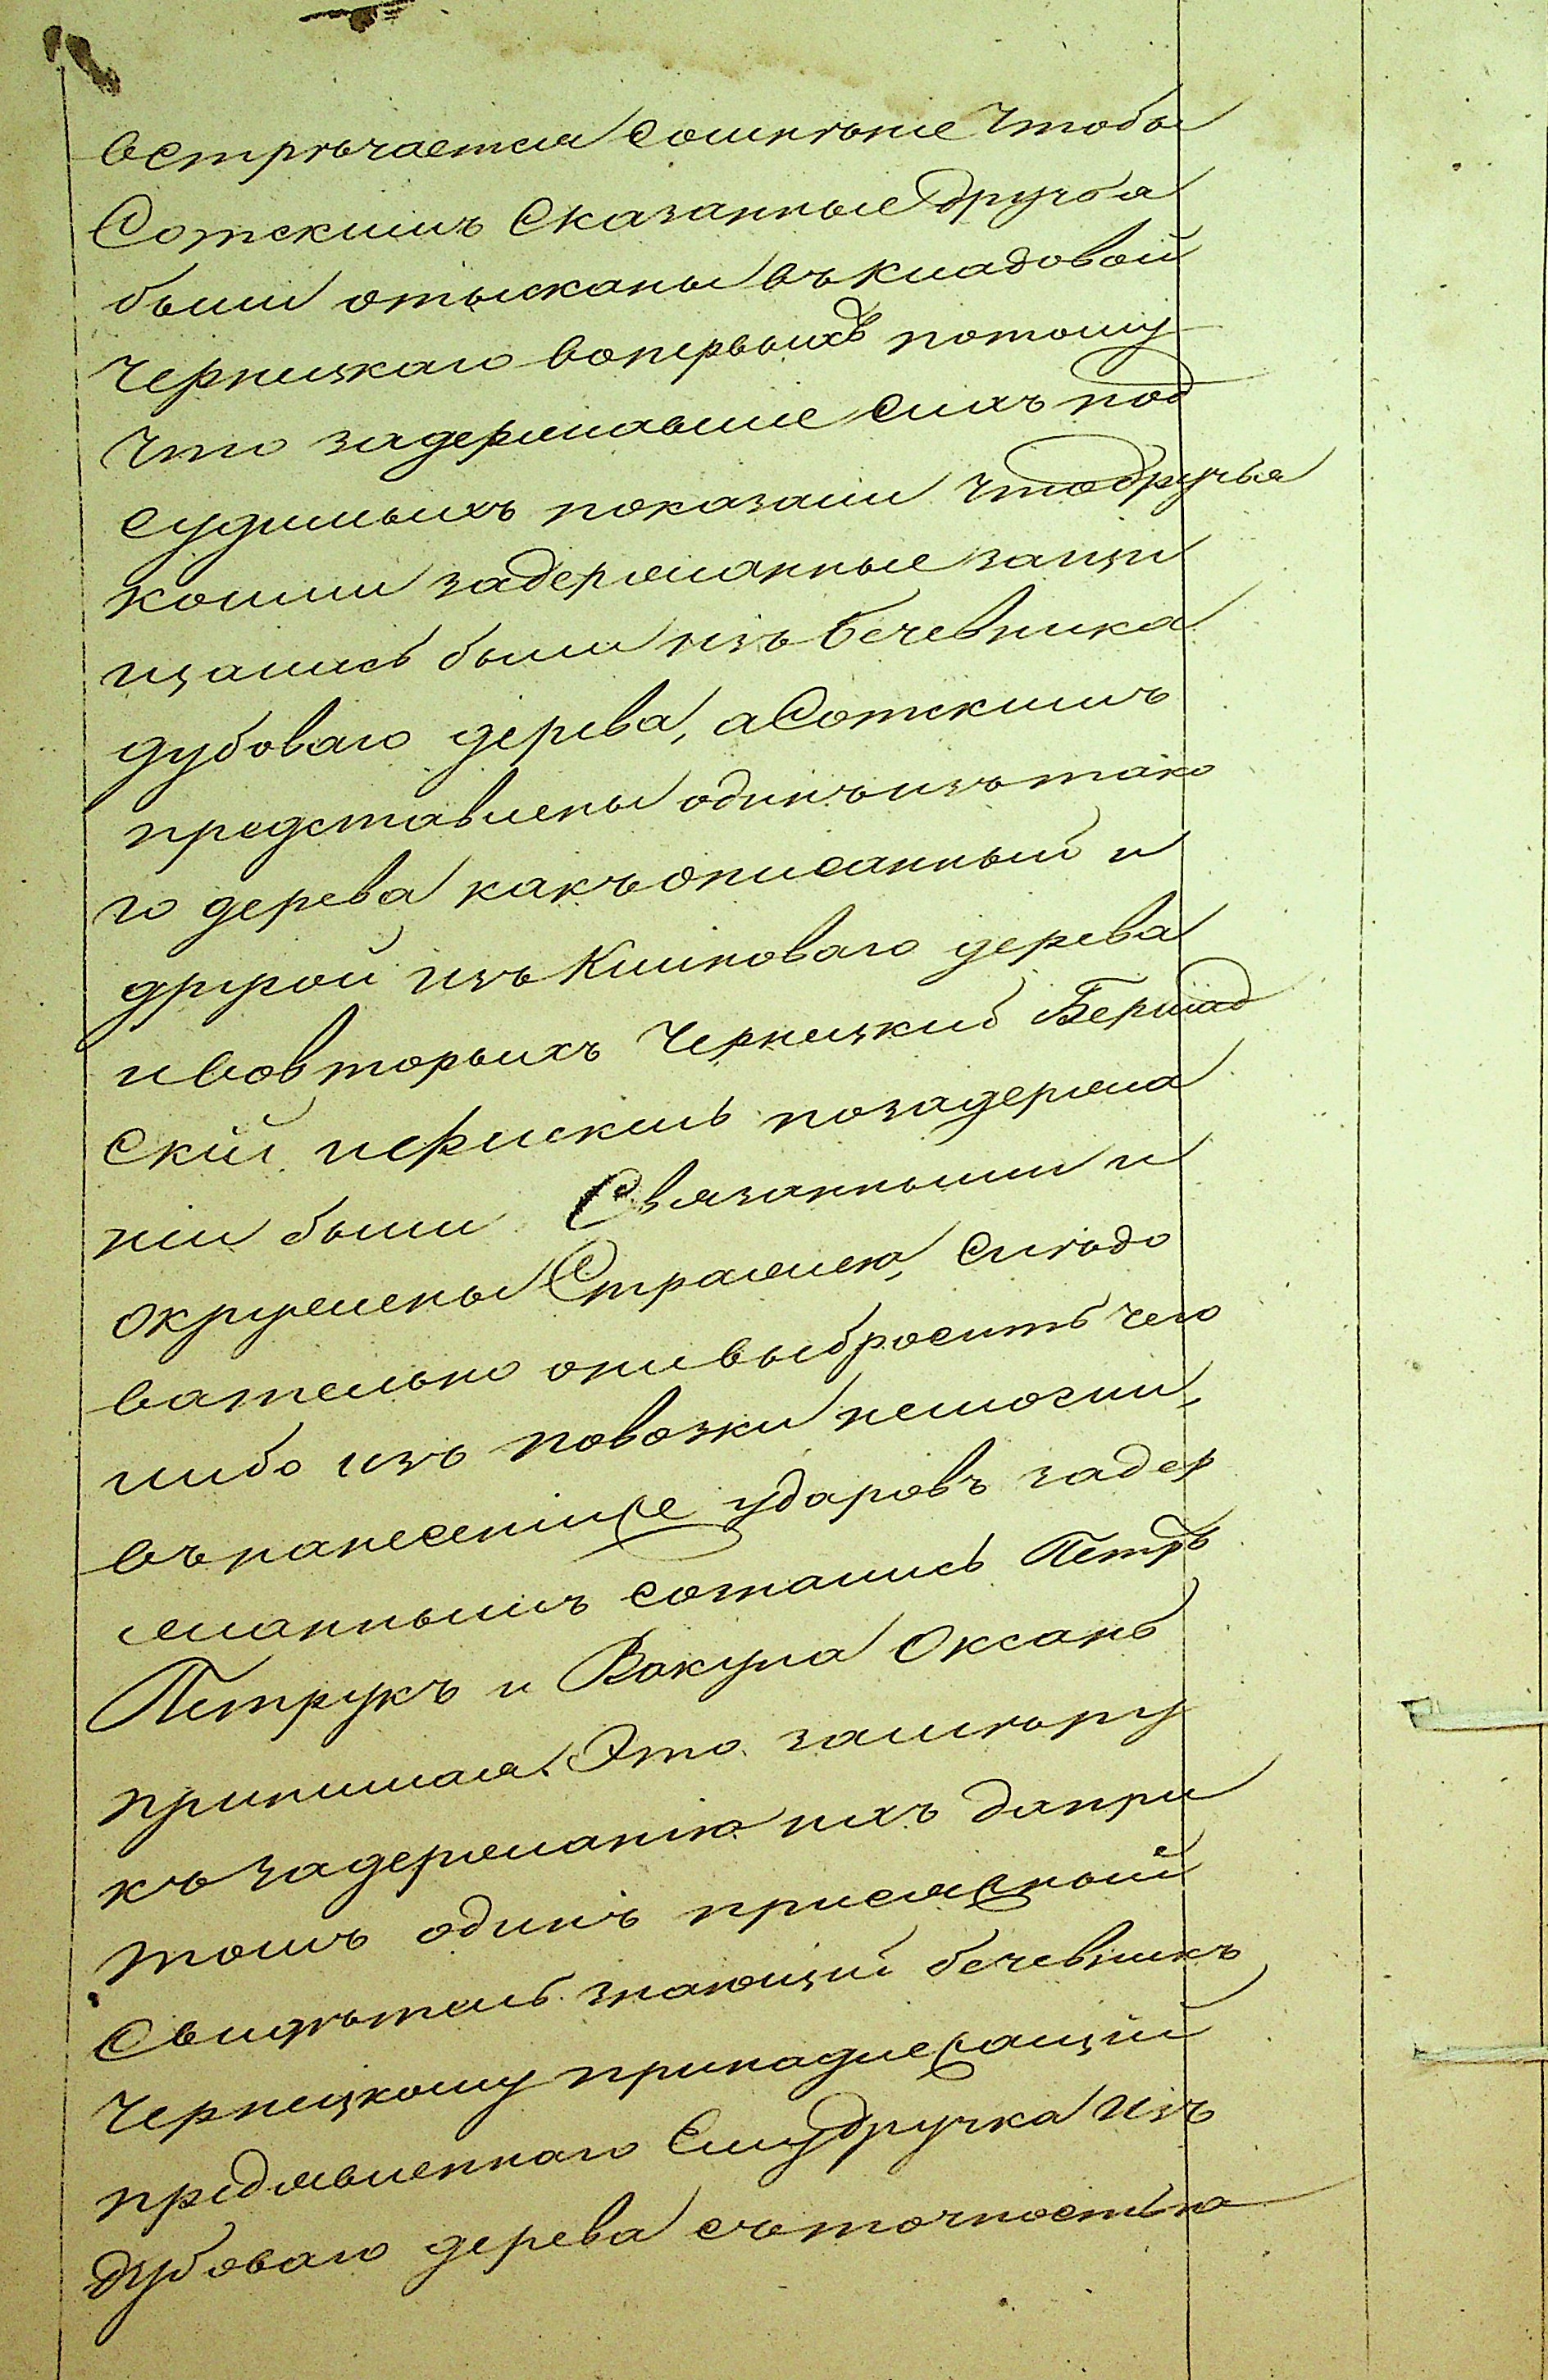 встрѣчается сомнѣнiе чтобы
Сотскимъ сказанные дручья
были отысканы въ кладовой
Чернецкаго вопервыхъ потому
что задержавшiе сихъ под
судимыхъ показали что дручья
коими задержанные защи
щались были изъ бечевника
дубоваго дерева, а Сотскимъ
представлены одинъ изъ тако
го дерева какъ описанный и
другой изъ Клиноваго дерева
и вовторыхъ Чернецкiй Бершад
скiй и по задержа
нiи были Связанными и
окружены Стражею, слѣдо
вательно они выбросить чего
либо изъ повозки немогли,
въ нанесенiи же ударовъ задер
жаннымъ сознались Петръ
Петрукъ и Вакула Оксанъ
принимая это за мѣру
къ задержанiю ихъ да при
томъ одинъ присяжный
Свидѣтель знающiй бечевникъ
Чернецкому принадлежащiй
предъявленнаго Ему дручка изъ
дубоваго дерева съ точностью